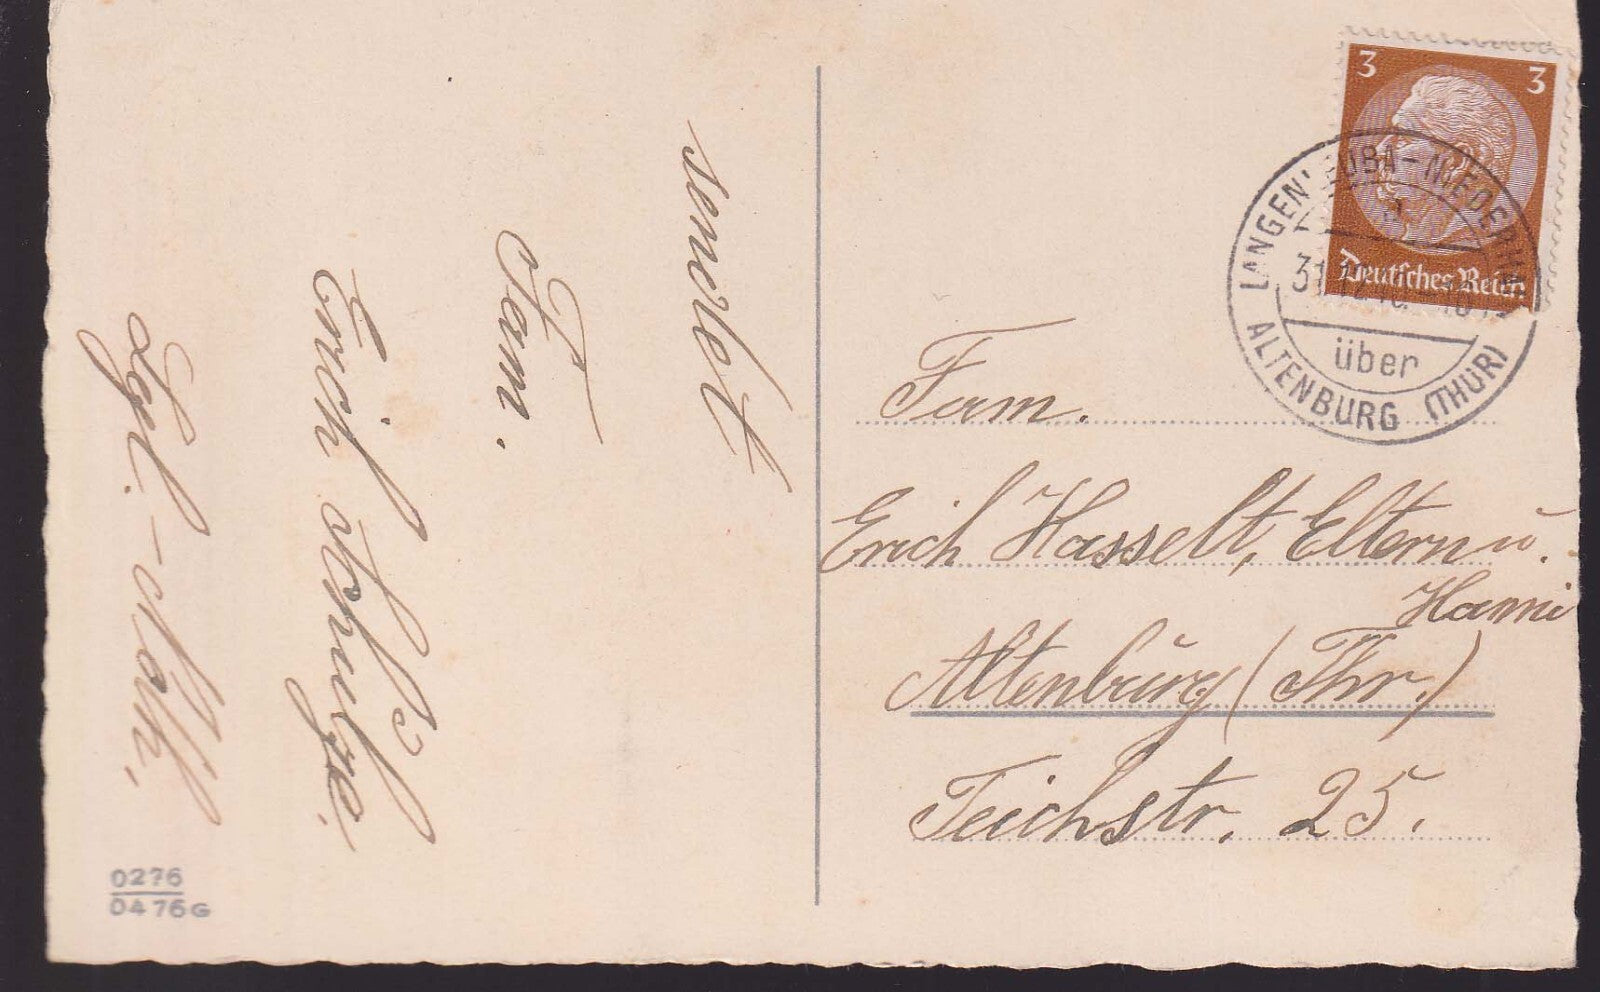 sendet
Fam.
Erich Schulze.
Lgl.-Ndh.
0276
0476G
3 3
Deutsches Reich
LANGENLEUBA-NIEDERHAIN
a
31.12.
über
ALTENBURG (THÜR)
Fam.
Erich Hasselt, Eltern u.
Hanni
Altenburg (Thr.)
Teichstr. 25.